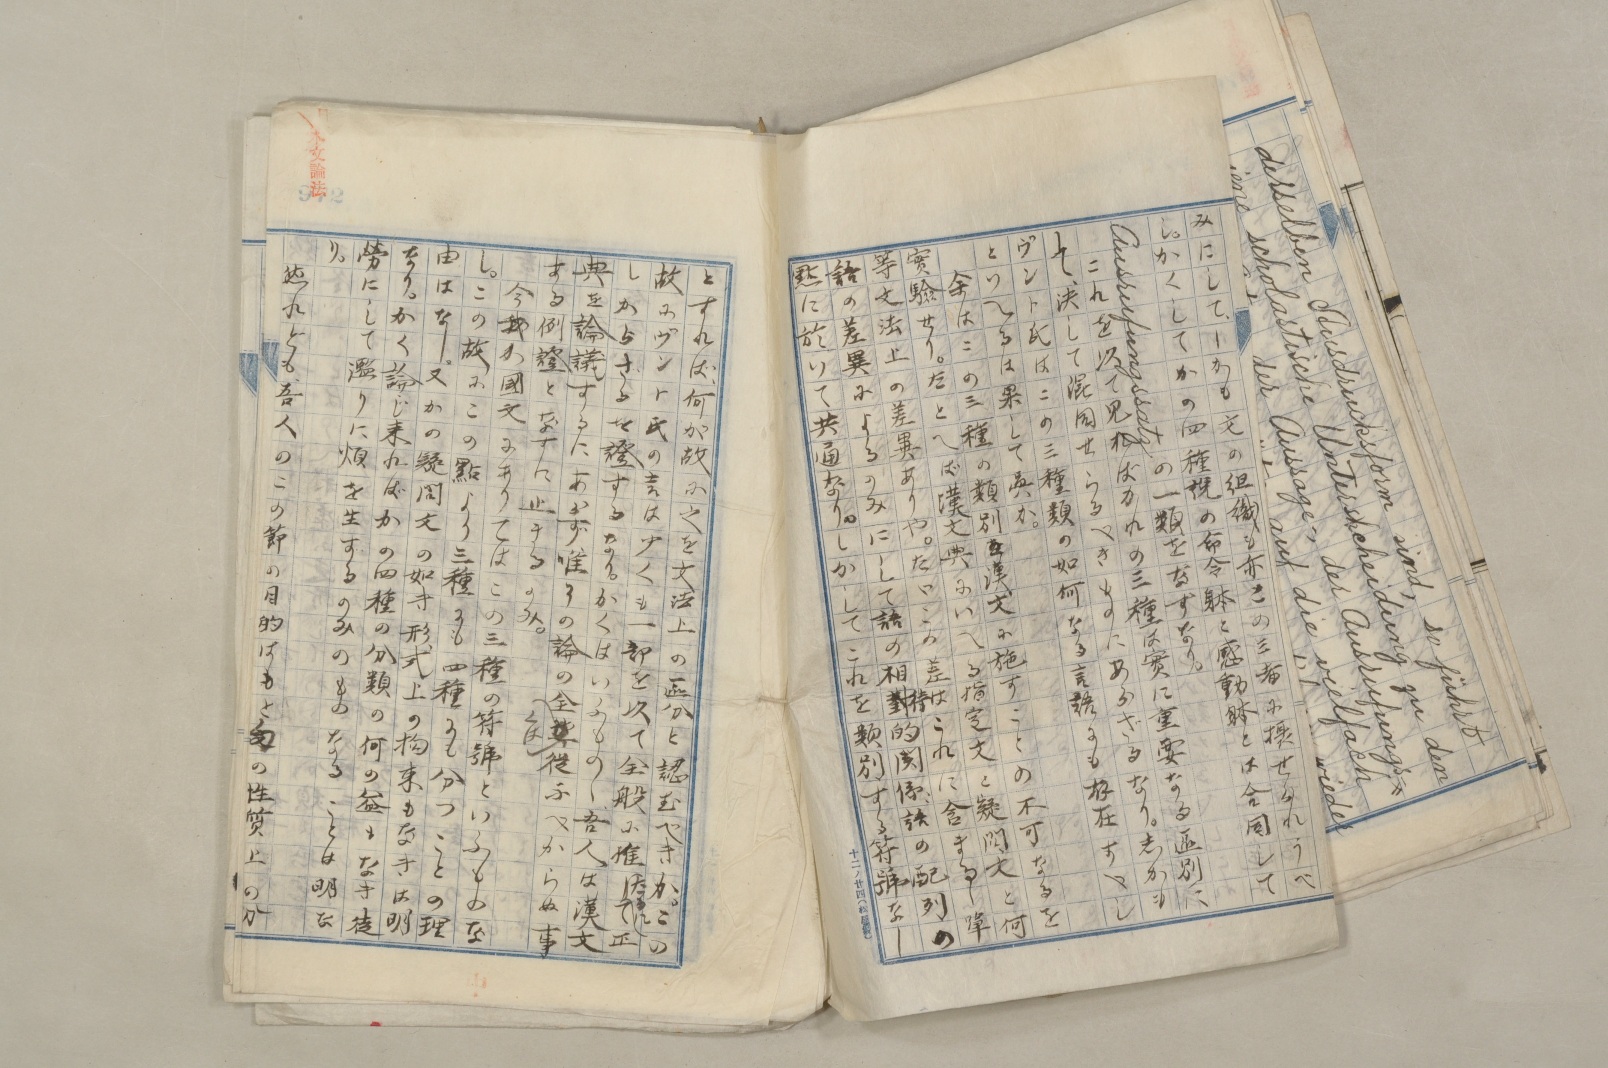 みにして、しかも文の組織も亦この三者に摸せられうべ
し。かくしてかの四種説の命令躰と感動躰とは合同して
Ausrufungssatz の一類をなすなり。
これを以て見ればかれの三種は實に重要なる區別に
して、決して混同せらるべきものにあらざるなり。しかも
ヴント氏はこの三種類の如何なる言語にも存在すべし
といへるは果して眞か。
余はこの三種の類別を漢文に施すことの不可なるを
實驗せり。たとへば漢文典にいへる指定文と疑問文と何
等文法上の差異ありや。たゞこの差はこれに含まるゝ單
語の差異によるのみにして語の相待的関係、語の配列の
點に於いて共通なり。しかしてこれを類別する符號なし
とすれば、何が故に之を文法上の區分と認むべきか。この
故にヴント氏の言は少くも一部を以て全般に推したるにて正
しからざるを證するなり。かくはいふものゝ吾人は漢文
典を論議するにあらず唯その論の全くは從ふべからぬ事
ある例證となすに止まるのみ。
今我が國文にありてはこの三種の符號といふものな
し。この故にこの點より三種にも四種にも分つことの理
由はなし。又かの疑問文の如き形式上の拘束もなきは明
なり。かく論じ来ればかの四種の分類の何の益もなき徒
勞にして濫りに煩を生ずるのみのものなることは明な
り。
然れども、吾人のこの節の目的はもと句の性質上のか
日本文論法
942
十二ノ廿四(松屋製)
desselben Ausdrucksform sind, so führt
jene scholastische Unterscheidung zu den
der Aussage, des Ausrufungs-
auf die vielfach
wieder